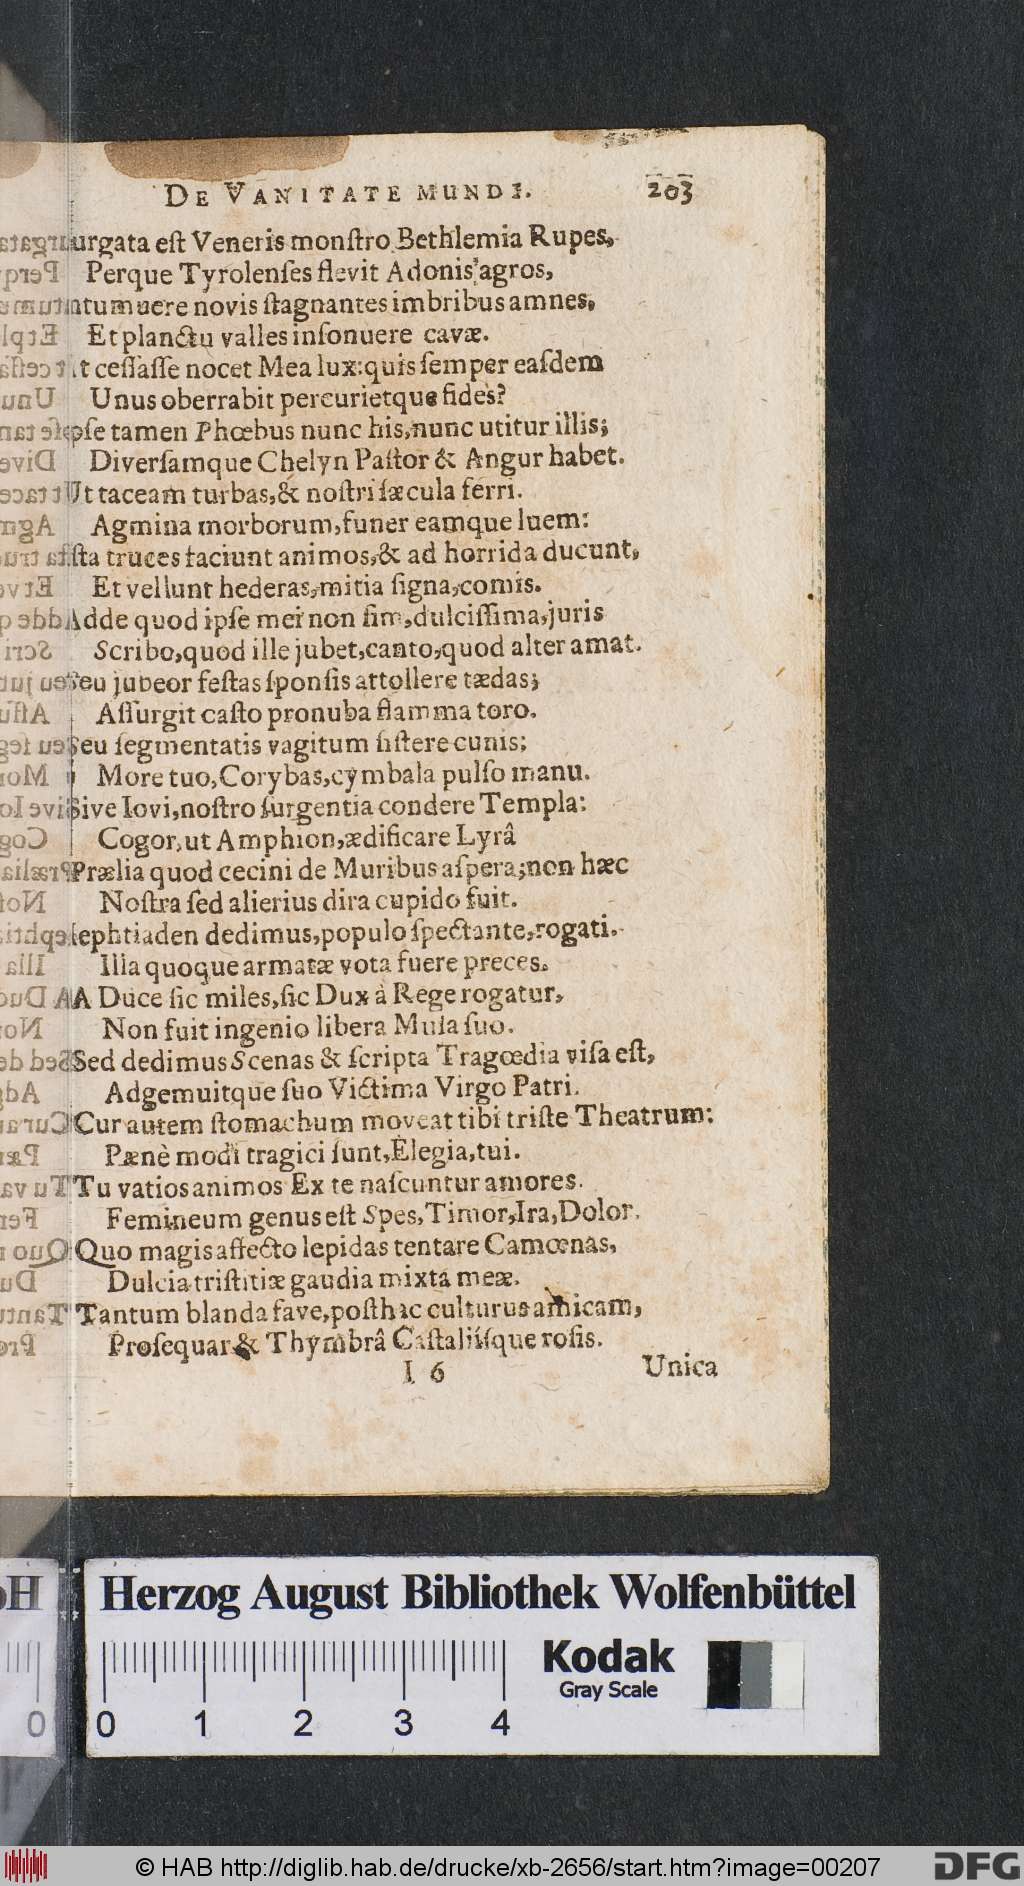 DE VANITATE MUNDI. 203
urgata eſt Veneris monſtro Bethlemia Rupes,
Perque Tyrolenſes flevit Adonis agros,
ntumuere novis ſtagnantes imbribus amnes,
Et planctu valles inſonuere cavæ.
t ceſſaſſe nocet Mea lux: quis ſemper eaſdem
Unus oberrabit percurietque fides?
pſe tamen Phœbus nunc his, nunc utitur illis;
Diverſamque Chelyn Paſtor & Angur habet.
Ut taceam turbas, & noſtri ſæcula ferri.
Agmina morborum, funer eamque luem:
ſta truces faciunt animos, & ad horrida ducunt,
Et vellunt hederas, mitia ſigna, comis.
Adde quod ipſe mei non ſim, dulciſſima, juris
Scribo, quod ille jubet, canto, quod alter amat.
Seu jubeor feſtas ſponſis attollere tædas;
Aſſurgit caſto pronuba flamma toro.
Seu ſegmentatis vagitum ſiſtere cunis;
More tuo, Corybas, cymbala pulſo manu.
Sive Iovi, noſtro ſurgentia condere Templa:
Cogor, ut Amphion, ædificare Lyrâ
Prælia quod cecini de Muribus aſpera; non hæc
Noſtra ſed alierius dira cupido fuit.
Iephtiaden dedimus, populo ſpectante, rogati.
Illa quoque armatæ vota fuere preces.
A Duce ſic miles, ſic Dux à Rege rogatur,
Non fuit ingenio libera Muſa ſuo.
Sed dedimus Scenas & ſcripta Tragœdia viſa eſt,
Adgemuitque ſuo Victima Virgo Patri.
Cur autem ſtomachum moveat tibi triſte Theatrum:
Pænè modi tragici ſunt, Elegia, tui.
Tu vatios animos Ex te naſcuntur amores.
Femineum genus eſt Spes, Timor, Ira, Dolor.
Quo magis affecto lepidas tentare Camœnas,
Dulcia triſtitiæ gaudia mixta meæ.
Tantum blanda fave, poſthac culturus amicam,
Proſequar & Thymbrâ Caſtaliiſque roſis.
I 6 Unica
Herzog August Bibliothek Wolfenbüttel
Kodak
Gray Scale
0 0 1 2 3 4
© HAB http://diglib.hab.de/drucke/xb-2656/start.htm?image=00207
DFG